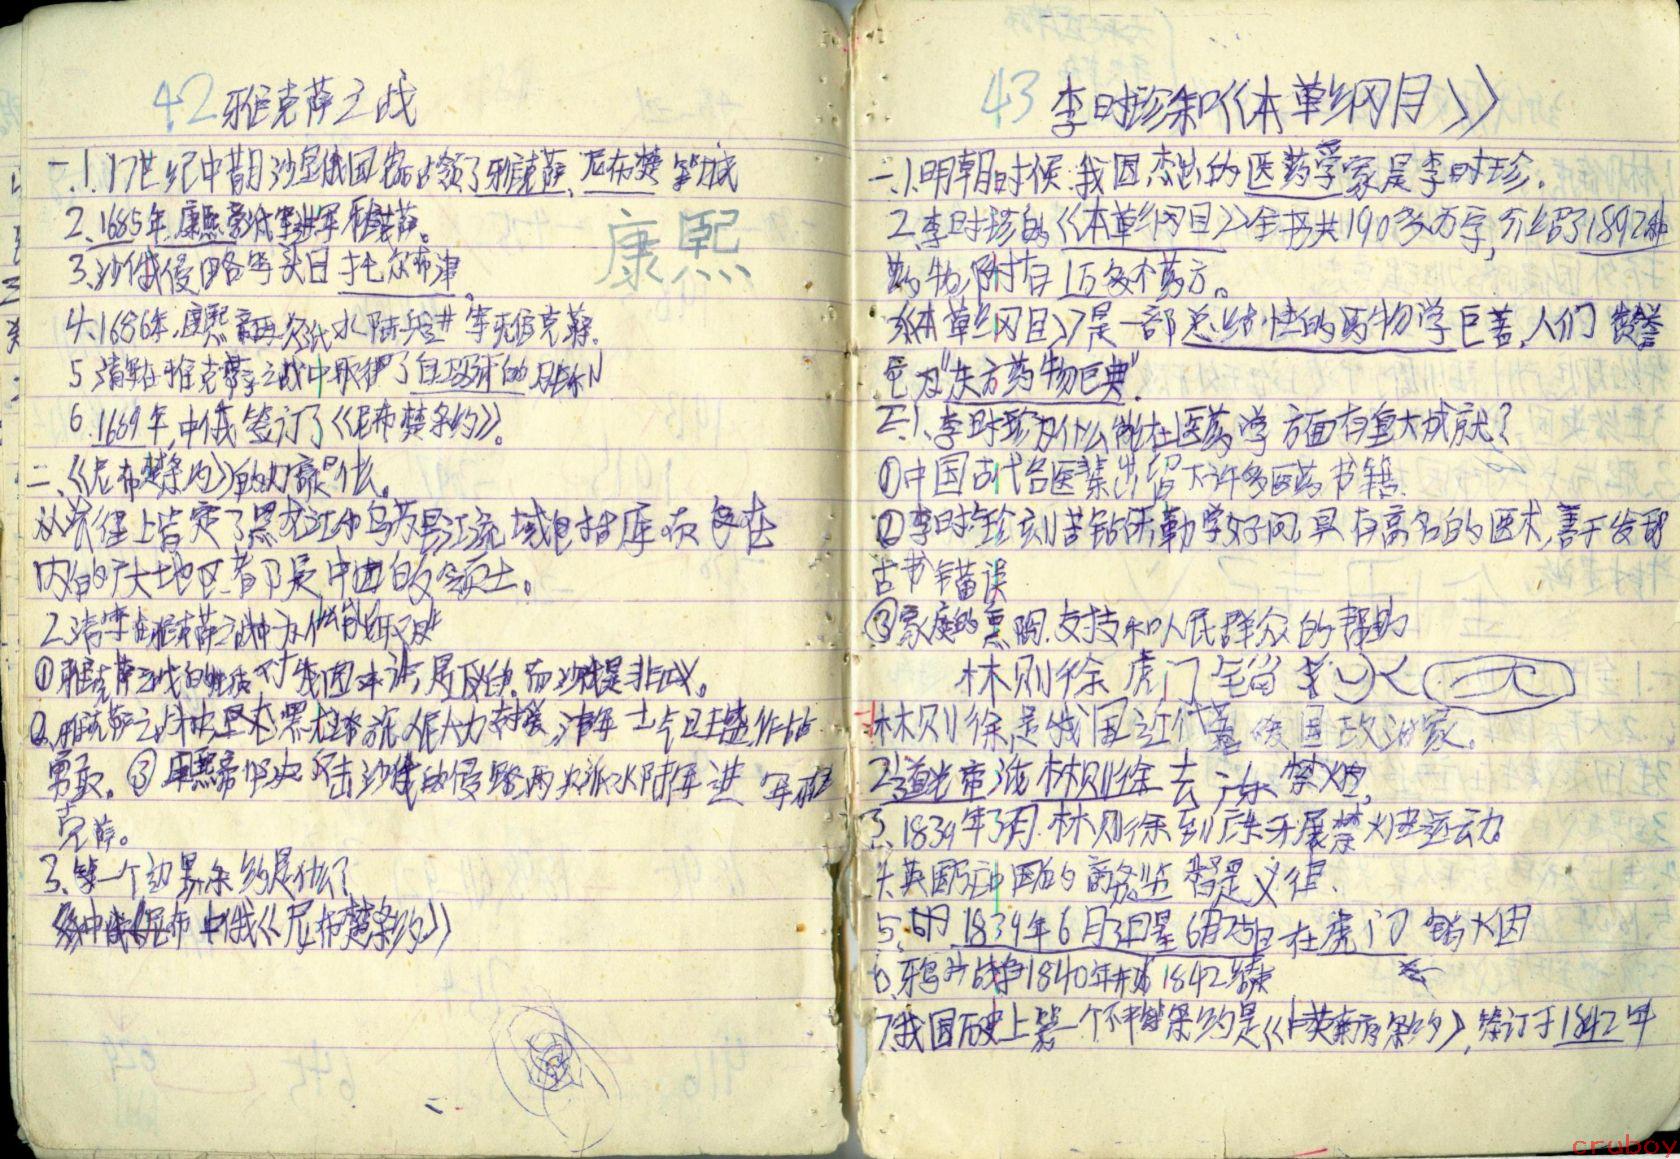 42 雅克萨之战
一.1.17世纪中 沙皇俄国 占领了雅克萨、尼布楚等城
2、1685年,康熙 进军雅克萨。
康熙
3、沙俄侵略军头目 托尔布津。
4.1686年,康熙再次派水陆兵 军雅克萨.
5 清军在雅克萨之战中取得了自卫 的胜利
6.1669年,中俄签订了《尼布楚条约》。
二、《尼布楚条约》的 什么。
从法律上肯定了黑龙江和乌苏里江流域包括库页 在
内的广大地区都是中国的领土。
2.清军在雅克萨之战中为什么能
①雅克萨之战的性质对我国来讲,是 而沙俄是非正义。
②雅克萨之战 黑龙 大力支援,清军士气旺盛,作战
勇敢。③康熙帝 击沙俄的侵略两次派水陆军进军雅
克萨。
3、第一个边界条约是什么?
中俄《尼布楚条约》
43 李时珍和《本草纲目》
一.1.明朝时候,我国杰出的医药学家是李时珍.
2、李时珍的《本草纲目》全书共190多万字,介绍了1892种
药物,附有1万多个药方。
3《本草纲目》是一部总结性的药物学巨著,人们赞誉
它为"东方药物巨典".
二.1、李时珍为什么能在医药学方面有重大成就?
①中国古代名医辈出留下许多医药书籍.
②李时珍刻苦钻研勤学好问,具有高名的医术,善于发现
古书错误
③家庭的熏陶.支持和人民群众的帮助
林则徐虎门销
一林则徐是我国近代 爱国政治家。
2、道光帝派林则徐去广东禁烟,
3、1839年3月.林则徐到广东开展禁烟运动
英国 中国的商务监督是义律.
5. 1839年6月3日至6月25日在虎门销
6、鸦片战争1840年 1842结束
7.我国历史上第一个不平等条约是《中英南京条约》,签订于1842年
cruboy